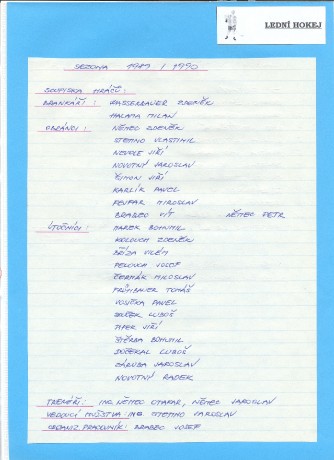 LEDNÍ HOKEJ
SEZONA 1989 / 1990
SOUPISKA HRÁČŮ:
BRANKÁŘI: KASSENBAUER ZDENĚK
HALAMA MILAN
OBRÁNCI: NĚMEC ZDENĚK
STEHNO VLASTIMIL
NEDOLE JIŘÍ
NOVOTNÝ JAROSLAV
ŠIMON JIŘÍ
KARLÍK PAVEL
FENFAR MIROSLAV
BRABEC VÍT NĚMEC PETR
ÚTOČNÍCI: MAREK BOHUMIL
KOLOUCH ZDENĚK
BŘÍZA VILÉM
PECOVKA JOSEF
ČERMÁK MILOSLAV
FRÜHBAUER TOMÁŠ
VOSIČKA PAVEL
LUBOŠ
PIPEK JIŘÍ
ŠTĚRBA BOHUMIL
DOČEKAL LUBOŠ
ZÁRUBA JAROSLAV
NOVOTNÝ RADEK
TRENÉŘI: ING. NĚMEC OTAKAR, NĚMEC JAROSLAV
VEDOUCÍ MUŽSTVA: ING. STEHNO JAROSLAV
ORGANIZ. PRACOVNÍK: BRABEC JOSEF